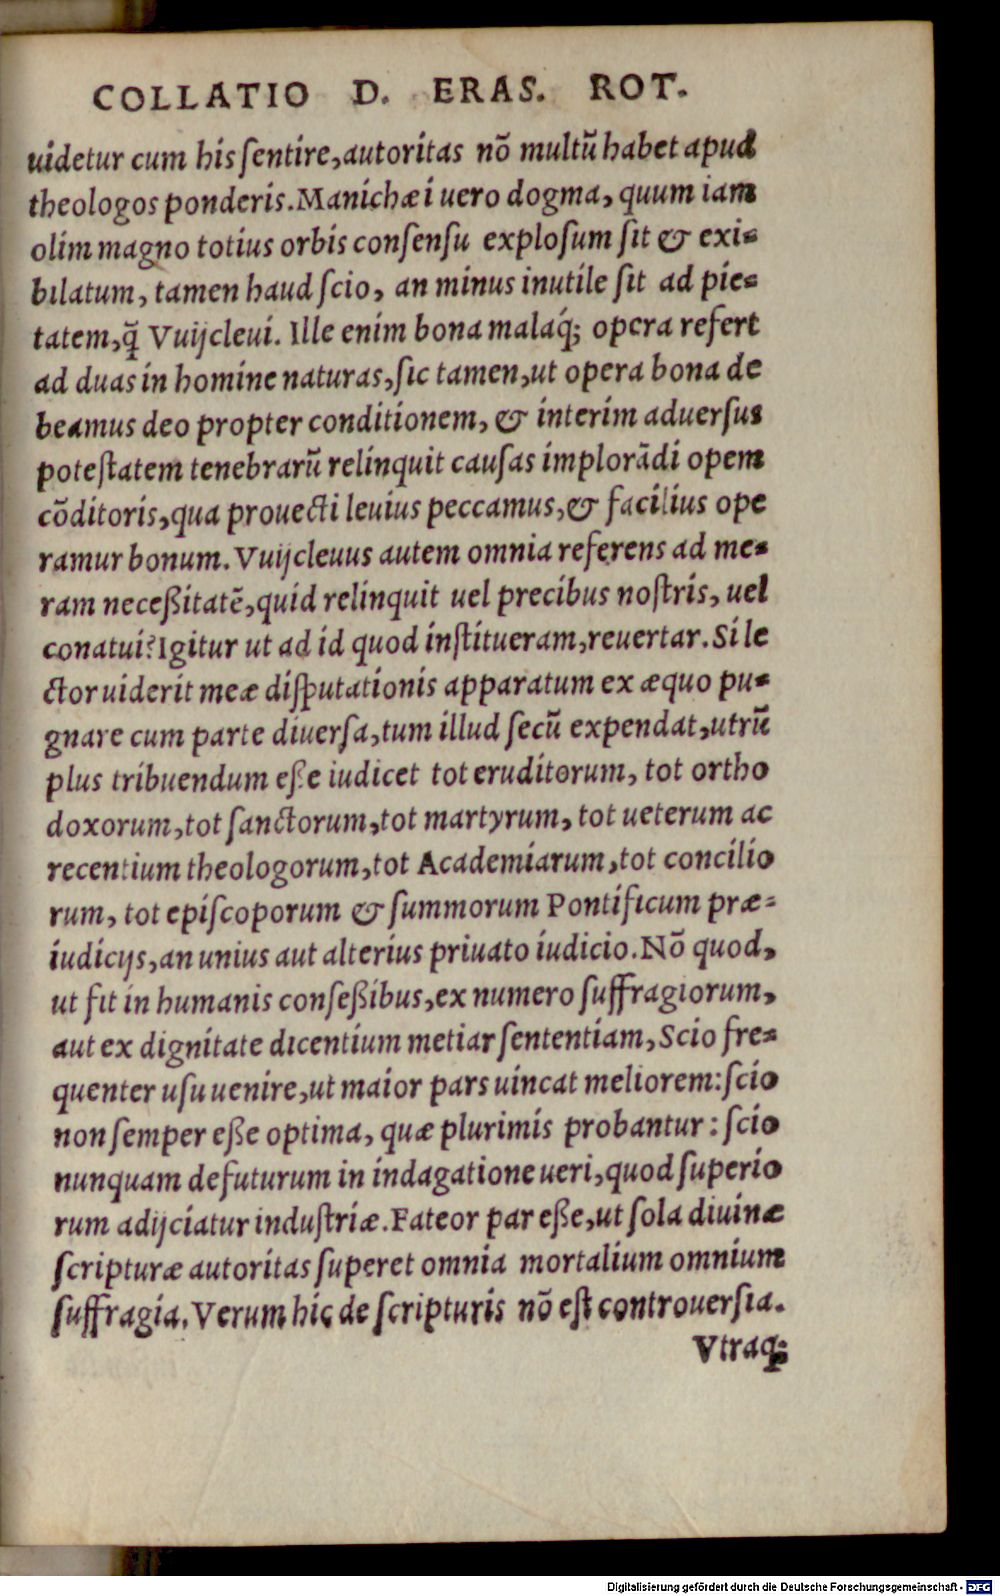 COLLATIO D. ERAS. ROT.
uidetur cum his ſentire,autoritas nõ multũ habet apud
theologos ponderis.Manichæi uero dogma, quum iam
olim magno totius orbis conſenſu exploſum ſit & exi=
bilatum, tamen haud ſcio, an minus inutile ſit ad pie=
tatem,q̃ Vuijcleui. Ille enim bona malaq́; opera refert
ad duas in homine naturas,ſic tamen,ut opera bona de
beamus deo propter conditionem, & interim aduerſus
poteſtatem tenebrarũ relinquit cauſas implorãdi opem
cõditoris,qua prouecti leuius peccamus,& facilius ope
ramur bonum.Vuijcleuus autem omnia referens ad me=
ram neceßitatẽ,quid relinquit uel precibus noſtris, uel
conatui?Igitur ut ad id quod inſtitueram,reuertar.Si le
ctor uiderit meæ diſputationis apparatum ex æquo pu=
gnare cum parte diuerſa,tum illud ſecũ expendat,utrũ
plus tribuendum eße iudicet tot eruditorum, tot ortho
doxorum,tot ſanctorum,tot martyrum, tot ueterum ac
recentium theologorum,tot Academiarum,tot concilio
rum, tot epiſcoporum & ſummorum Pontificum præ=
iudicijs,an unius aut alterius priuato iudicio.Nõ quod,
ut fit in humanis conſeßibus,ex numero ſuffragiorum,
aut ex dignitate dicentium metiar ſententiam,Scio fre=
quenter uſu uenire,ut maior pars uincat meliorem:ſcio
non ſemper eße optima, quæ plurimis probantur: ſcio
nunquam defuturum in indagatione ueri,quod ſuperio
rum adijciatur induſtriæ.Fateor par eße,ut ſola diuinæ
ſcripturæ autoritas ſuperet omnia mortalium omnium
ſuffragia.Verum hic de ſcripturis nõ eſt controuerſia.
Vtraq;
Digitalisierung gefördert durch die Deutsche Forschungsgemeinschaft - DFG